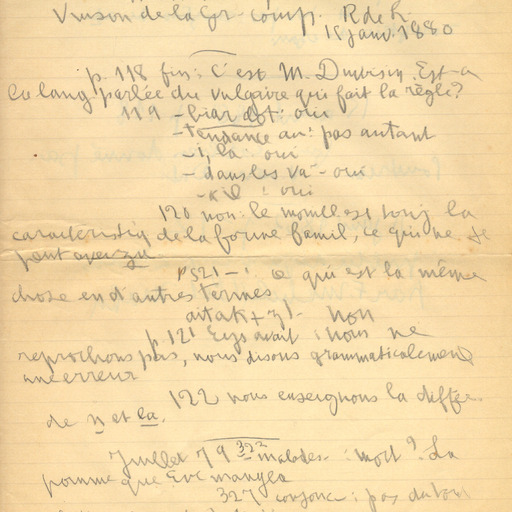 Vinson de la Gr. comp. R de L.
15 janv. 1880
p. 118 fin: C'est M. Duvoisin. Est-ce
la lang parlée du vulgaire qui fait la règle?
119 - biar dot: oui
- tendance au: pas autant
- i, la: oui
- dans les va - oui
- : oui
120 non: le est la
caracteristiq de la forme famil, ce qui ne se
peut
p 121 - : ce qui est la même
chose en d'autres termes
aitak + z) - non
p 121 Eys avait: nous ne
reprochons pas, nous disons grammaticalement
une erreur
122 nous enseignons la différ.
de n et la.
Juillet 79 322 malades: mod? La
pomme que Eve mangea
327 conjonc: pas du tout